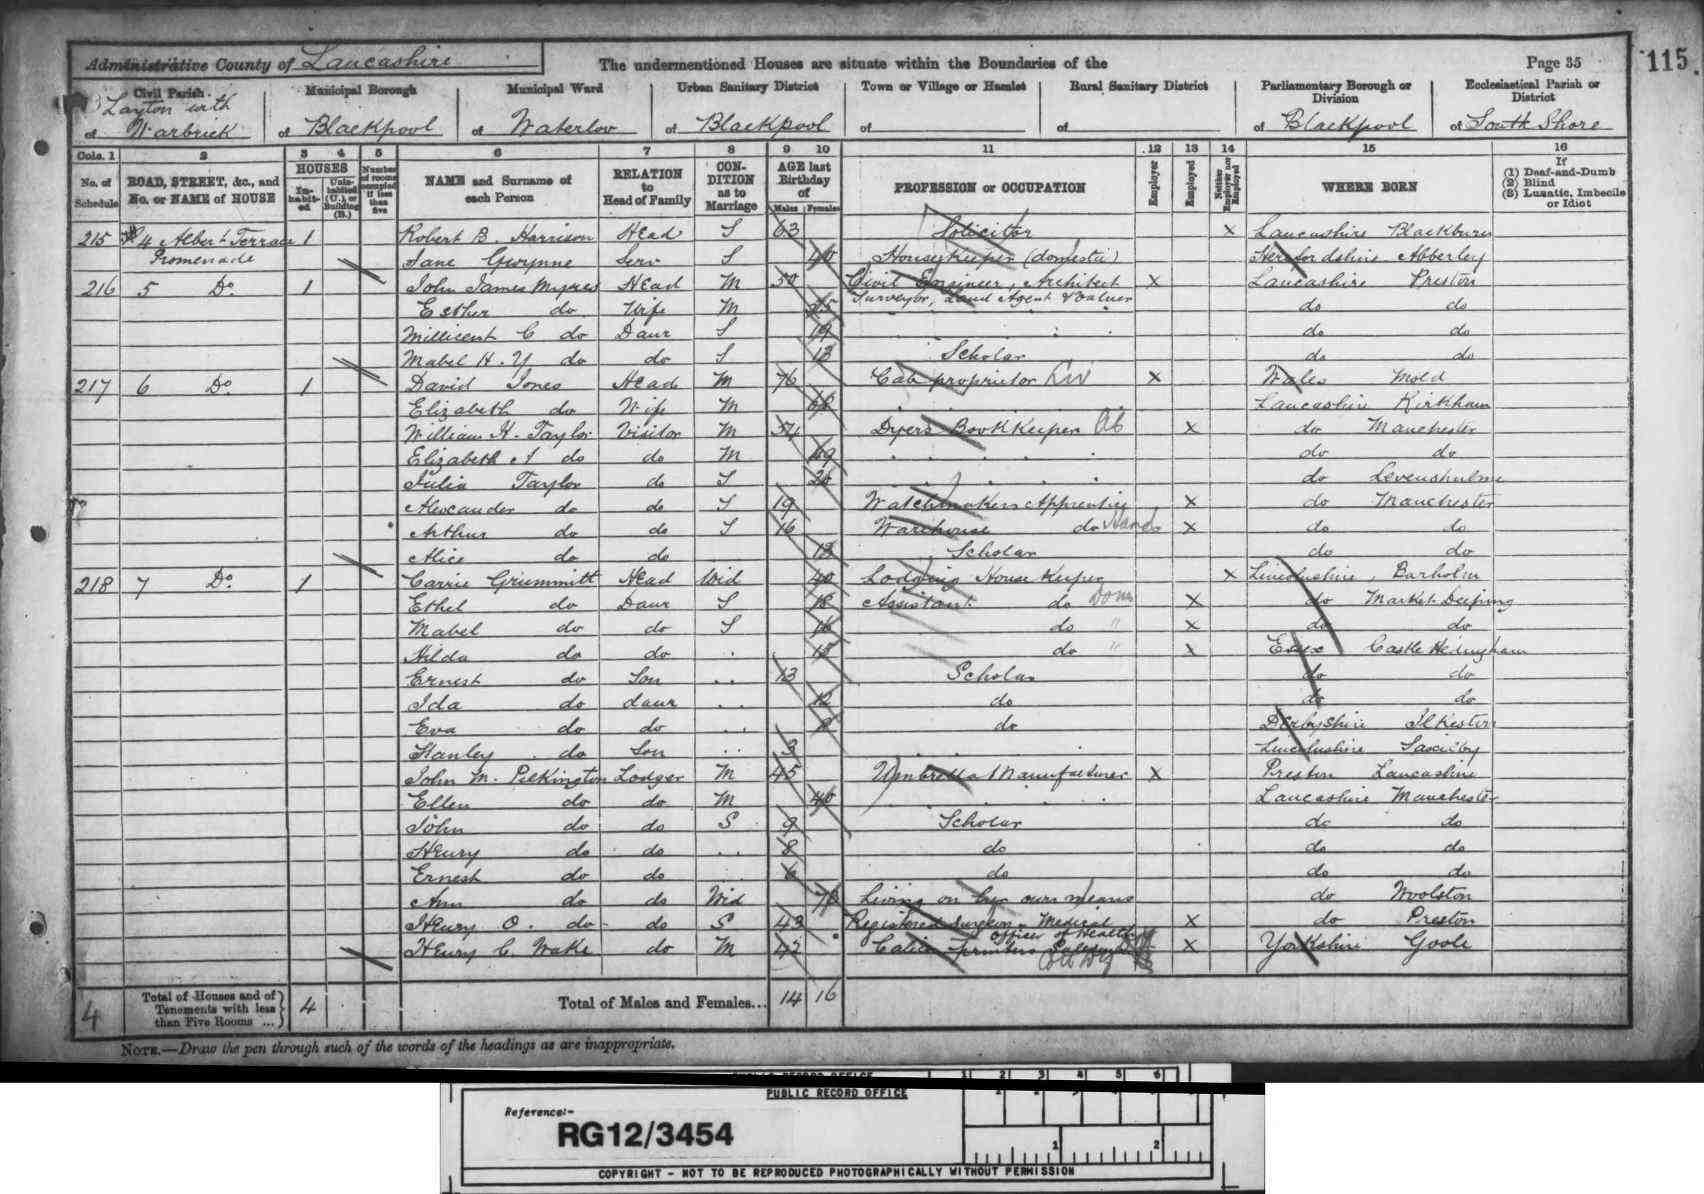 115.
Administrative County of Lancashire The undermentioned Houses are situate within the Boundaries of the Page 35
Civil Parish Municipal Borough Municipal Ward Urban Sanitary District Town or Village or Hamlet Rural Sanitary District Parliamentary Borough or Division Ecclesiastical Parish or District
of Layton with Warbrick of Blackpool of Waterloo of Blackpool of of of Blackpool of South Shore
Cols. 1 2 3 4 5 6 7 8 9 10 11 12 13 14 15 16
No. of Schedule ROAD, STREET, &c., and No. or NAME of HOUSE HOUSES Inhabited Uninhabited (U.), or Building (B.) Number of rooms occupied if less than five NAME and Surname of each Person RELATION to Head of Family CONDITION as to Marriage AGE last Birthday of Males Females PROFESSION or OCCUPATION Employer Employed Neither Employer nor Employed WHERE BORN If (1) Deaf-and-Dumb (2) Blind (3) Lunatic, Imbecile or Idiot
215 4 Albert Terrace 1 Robert B. Harrison Head S 63 Solicitor X Lancashire Blackburn
Promenade Jane Gwynne Serv S 40 Housekeeper (domestic) Herefordshire Abberley
216 5 Do. 1 John James Myres Head M 50 Civil Engineer, Architect X Lancashire Preston
Esther do Wife M 45 Surveyor, Land Agent & Valuer do do
Millicent C do Daur S 19 do do
Mabel H. Y do do S 13 Scholar do do
217 6 Do. 1 David Jones Head M 76 Cab proprietor X Wales Mold
Elizabeth do Wife M 68 Lancashire Kirkham
William H. Taylor Visitor M 54 Dyers Bookkeeper X do Manchester
Elizabeth A do do M 49 do do
Julia Taylor do S 20 do Levenshulme
Alexander do do S 19 Watchmakers Apprentice X do Manchester
Arthur do do S 16 Warehouse do X do do
Alice do do 13 Scholar do do
218 7 Do. 1 Carrie Grummitt Head Wid 40 Lodging House Keeper X Lincolnshire, Barholm
Ethel do Daur S 18 Assistant do Dom X do Market Deeping
Mabel do do S 16 do " X do do
Hilda do do 15 do " X Essex Castle Hedingham
Ernest do Son 13 Scholar do do
Ida do daur 12 do do do
Eva do do do Derbyshire Ilkeston
Stanley do Son 3 Lincolnshire Saxilby
John M. Pilkington Lodger M 45 Umbrella Manufacturer X Preston Lancashire
Ellen do do M 40 Lancashire Manchester
John do do S 9 Scholar do do
Henry do do 8 do do do
Ernest do do 6 do do do
Ann do do Wid Living on her own means do Woolston
Henry O. do do S 43 Registered Surgeon Medical Officer of Health X do Preston
Henry C. Wake do M 42 Calico printers X Yorkshire Goole
4 Total of Houses and of Tenements with less than Five Rooms ... 4 Total of Males and Females... 14 16
NOTE.—Draw the pen through such of the words of the headings as are inappropriate.
PUBLIC RECORD OFFICE 1 2 3 4 5 6
PUBLIC RECORD OFFICE
Reference:-
RG12/3454
1 2
COPYRIGHT - NOT TO BE REPRODUCED PHOTOGRAPHICALLY WITHOUT PERMISSION